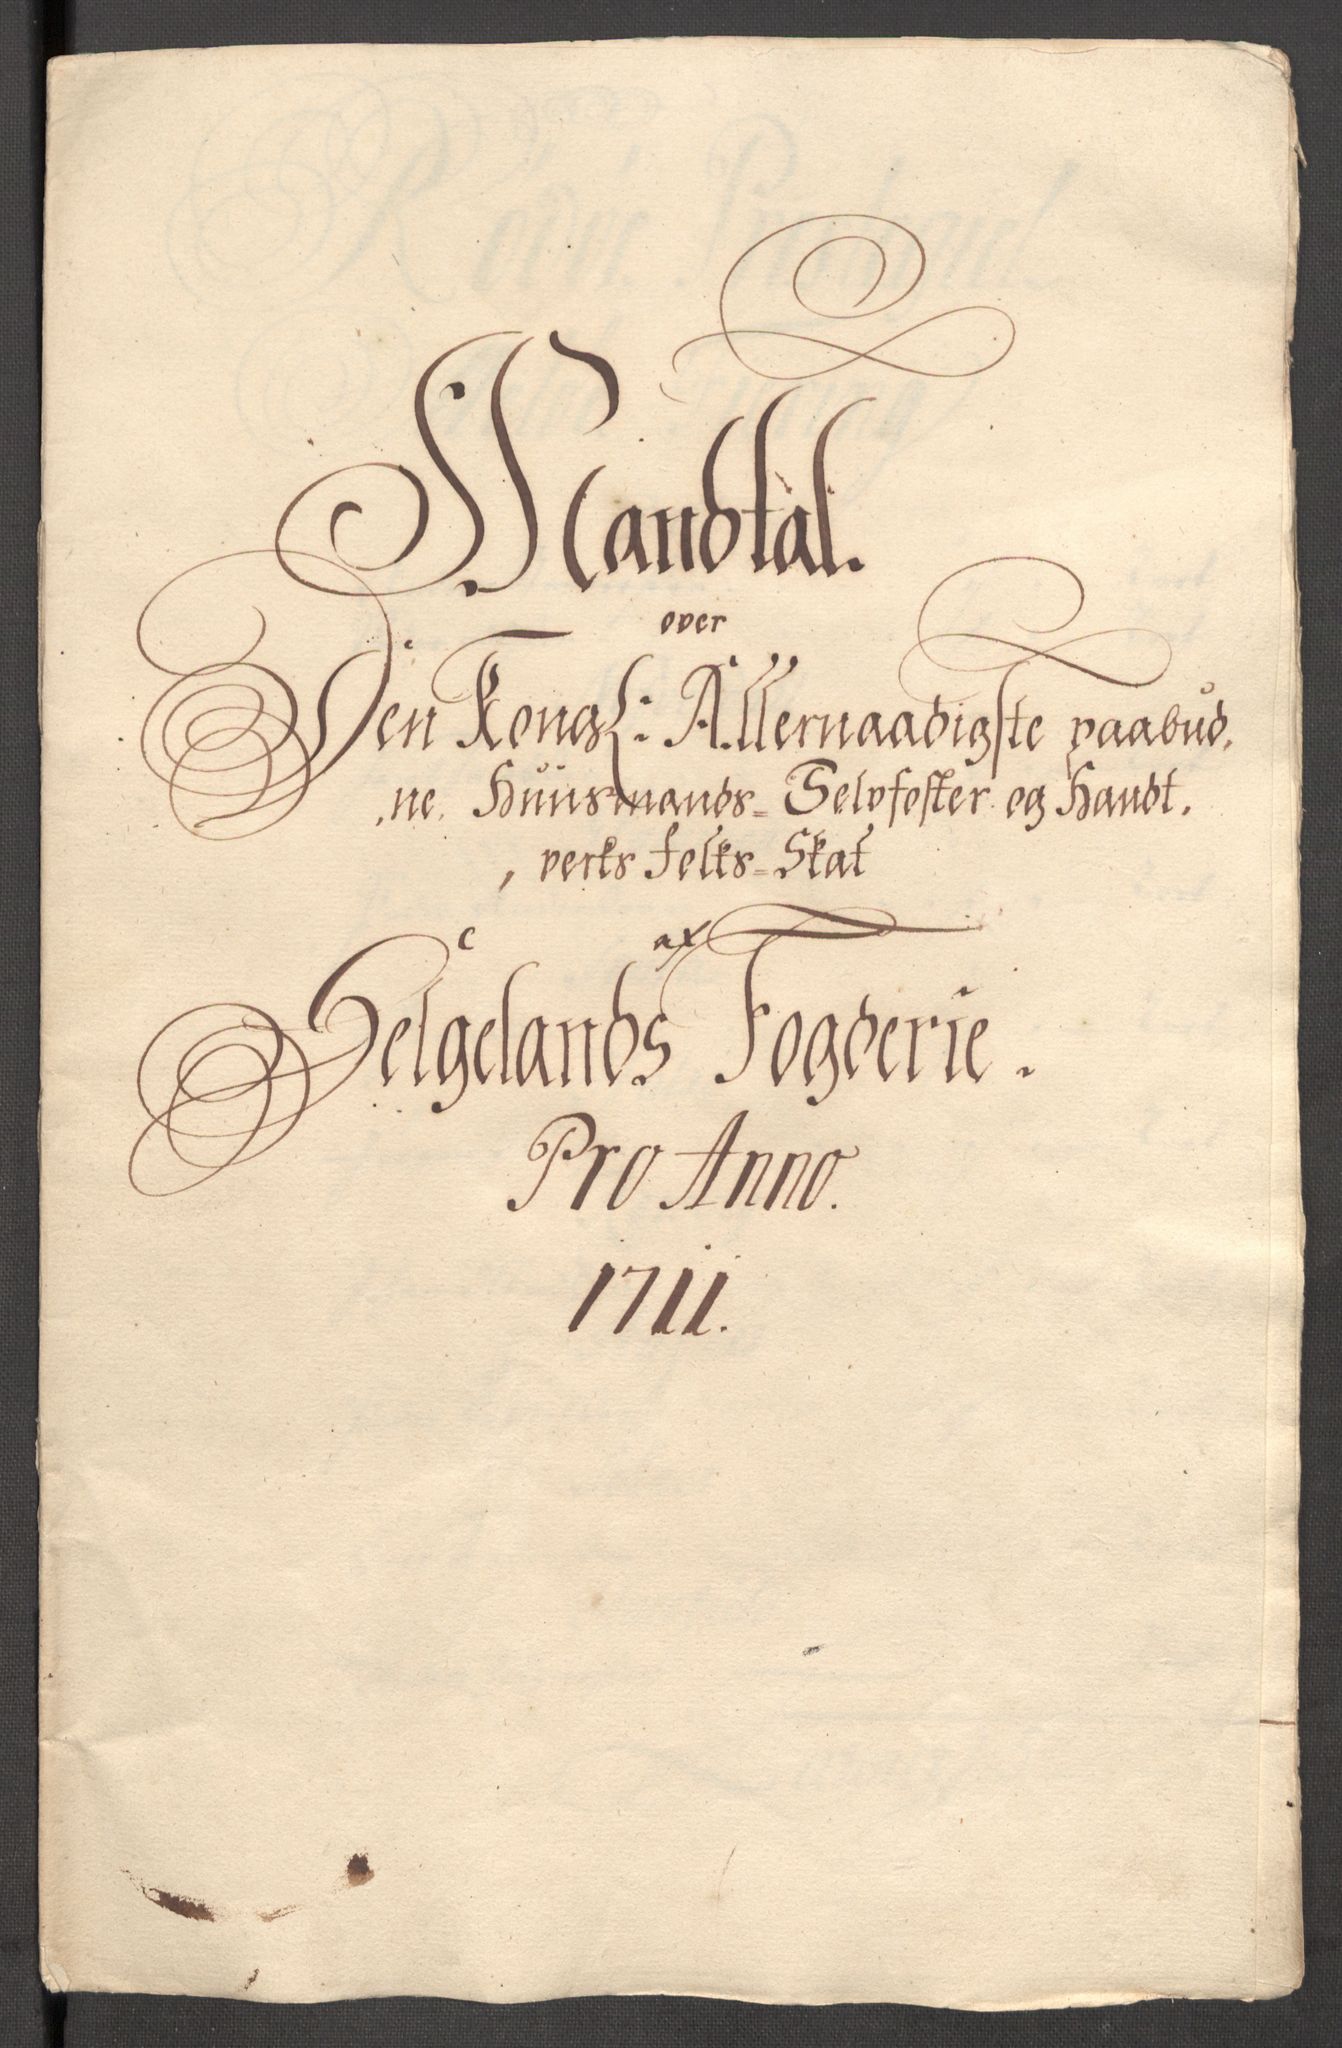 Mandtal.
over
Den Kongl: Allernaadigste paabud,
,ne, Huusmands= Selvfoster og Handt,
, verks folks= Skat
af
Helgelands Fogderie.
Pro Anno.
1711.